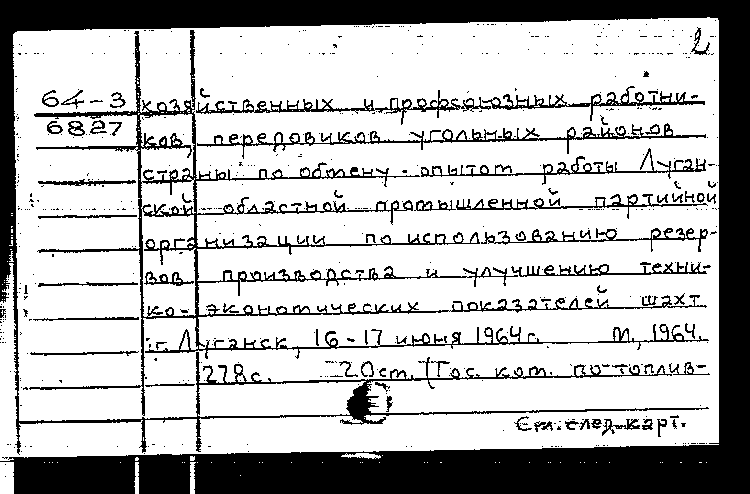 2
64-3 хозяйственных и профсоюзных работни-
6827 ков, передовиков угольных районов
страны по обмену опытом работы Луган-
ской областной промышленной партийной
организации по использованию резер-
вов производства и улучшению техни-
ко-экономических показателей шахт
г. Луганск, 16-17 июня 1964г. М., 1964.
278с. 20см. (Гос. ком. по топлив-
См. след. карт.